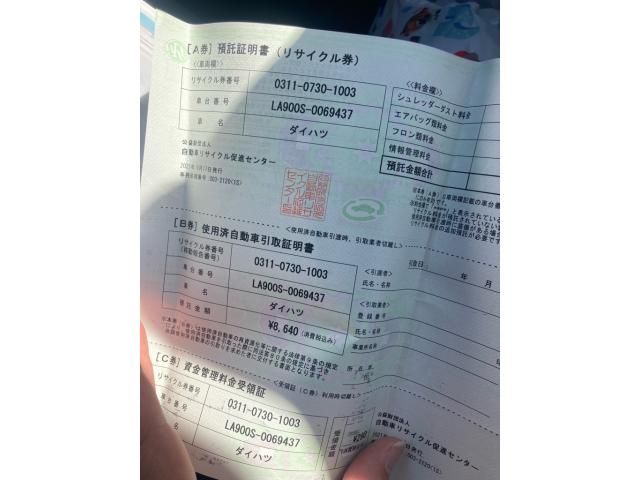 [A券] 預託証明書 (リサイクル券)
<<車両欄>>
リサイクル券番号 0311-0730-1003
車台番号 LA900S-0069437
車 名 ダイハツ
公益財団法人
自動車リサイクル促進センター
<<料金欄>>
シュレッダーダスト料金
エアバッグ類料金
フロン類料金
情報管理料金
預託金額合計
[B券] 使用済自動車引取証明書
<使用済自動車引渡時、引取業者切離し>
リサイクル券番号
(移動報告番号) 0311-0730-1003
車台番号 LA900S-0069437
車 名 ダイハツ
預託金額 ¥8,640 (消費税込み)
<引渡者>
氏名・名称
<引取業者>
登録番号
氏名・名称
事業所名称
所在地
年 月
[C券] 資金管理料金受領証
<受領証(C券)利用時切離し>
リサイクル券番号 0311-0730-1003
車台番号 LA900S-0069437
車 名 ダイハツ
公益財団法人
自動車リサイクル促進センター